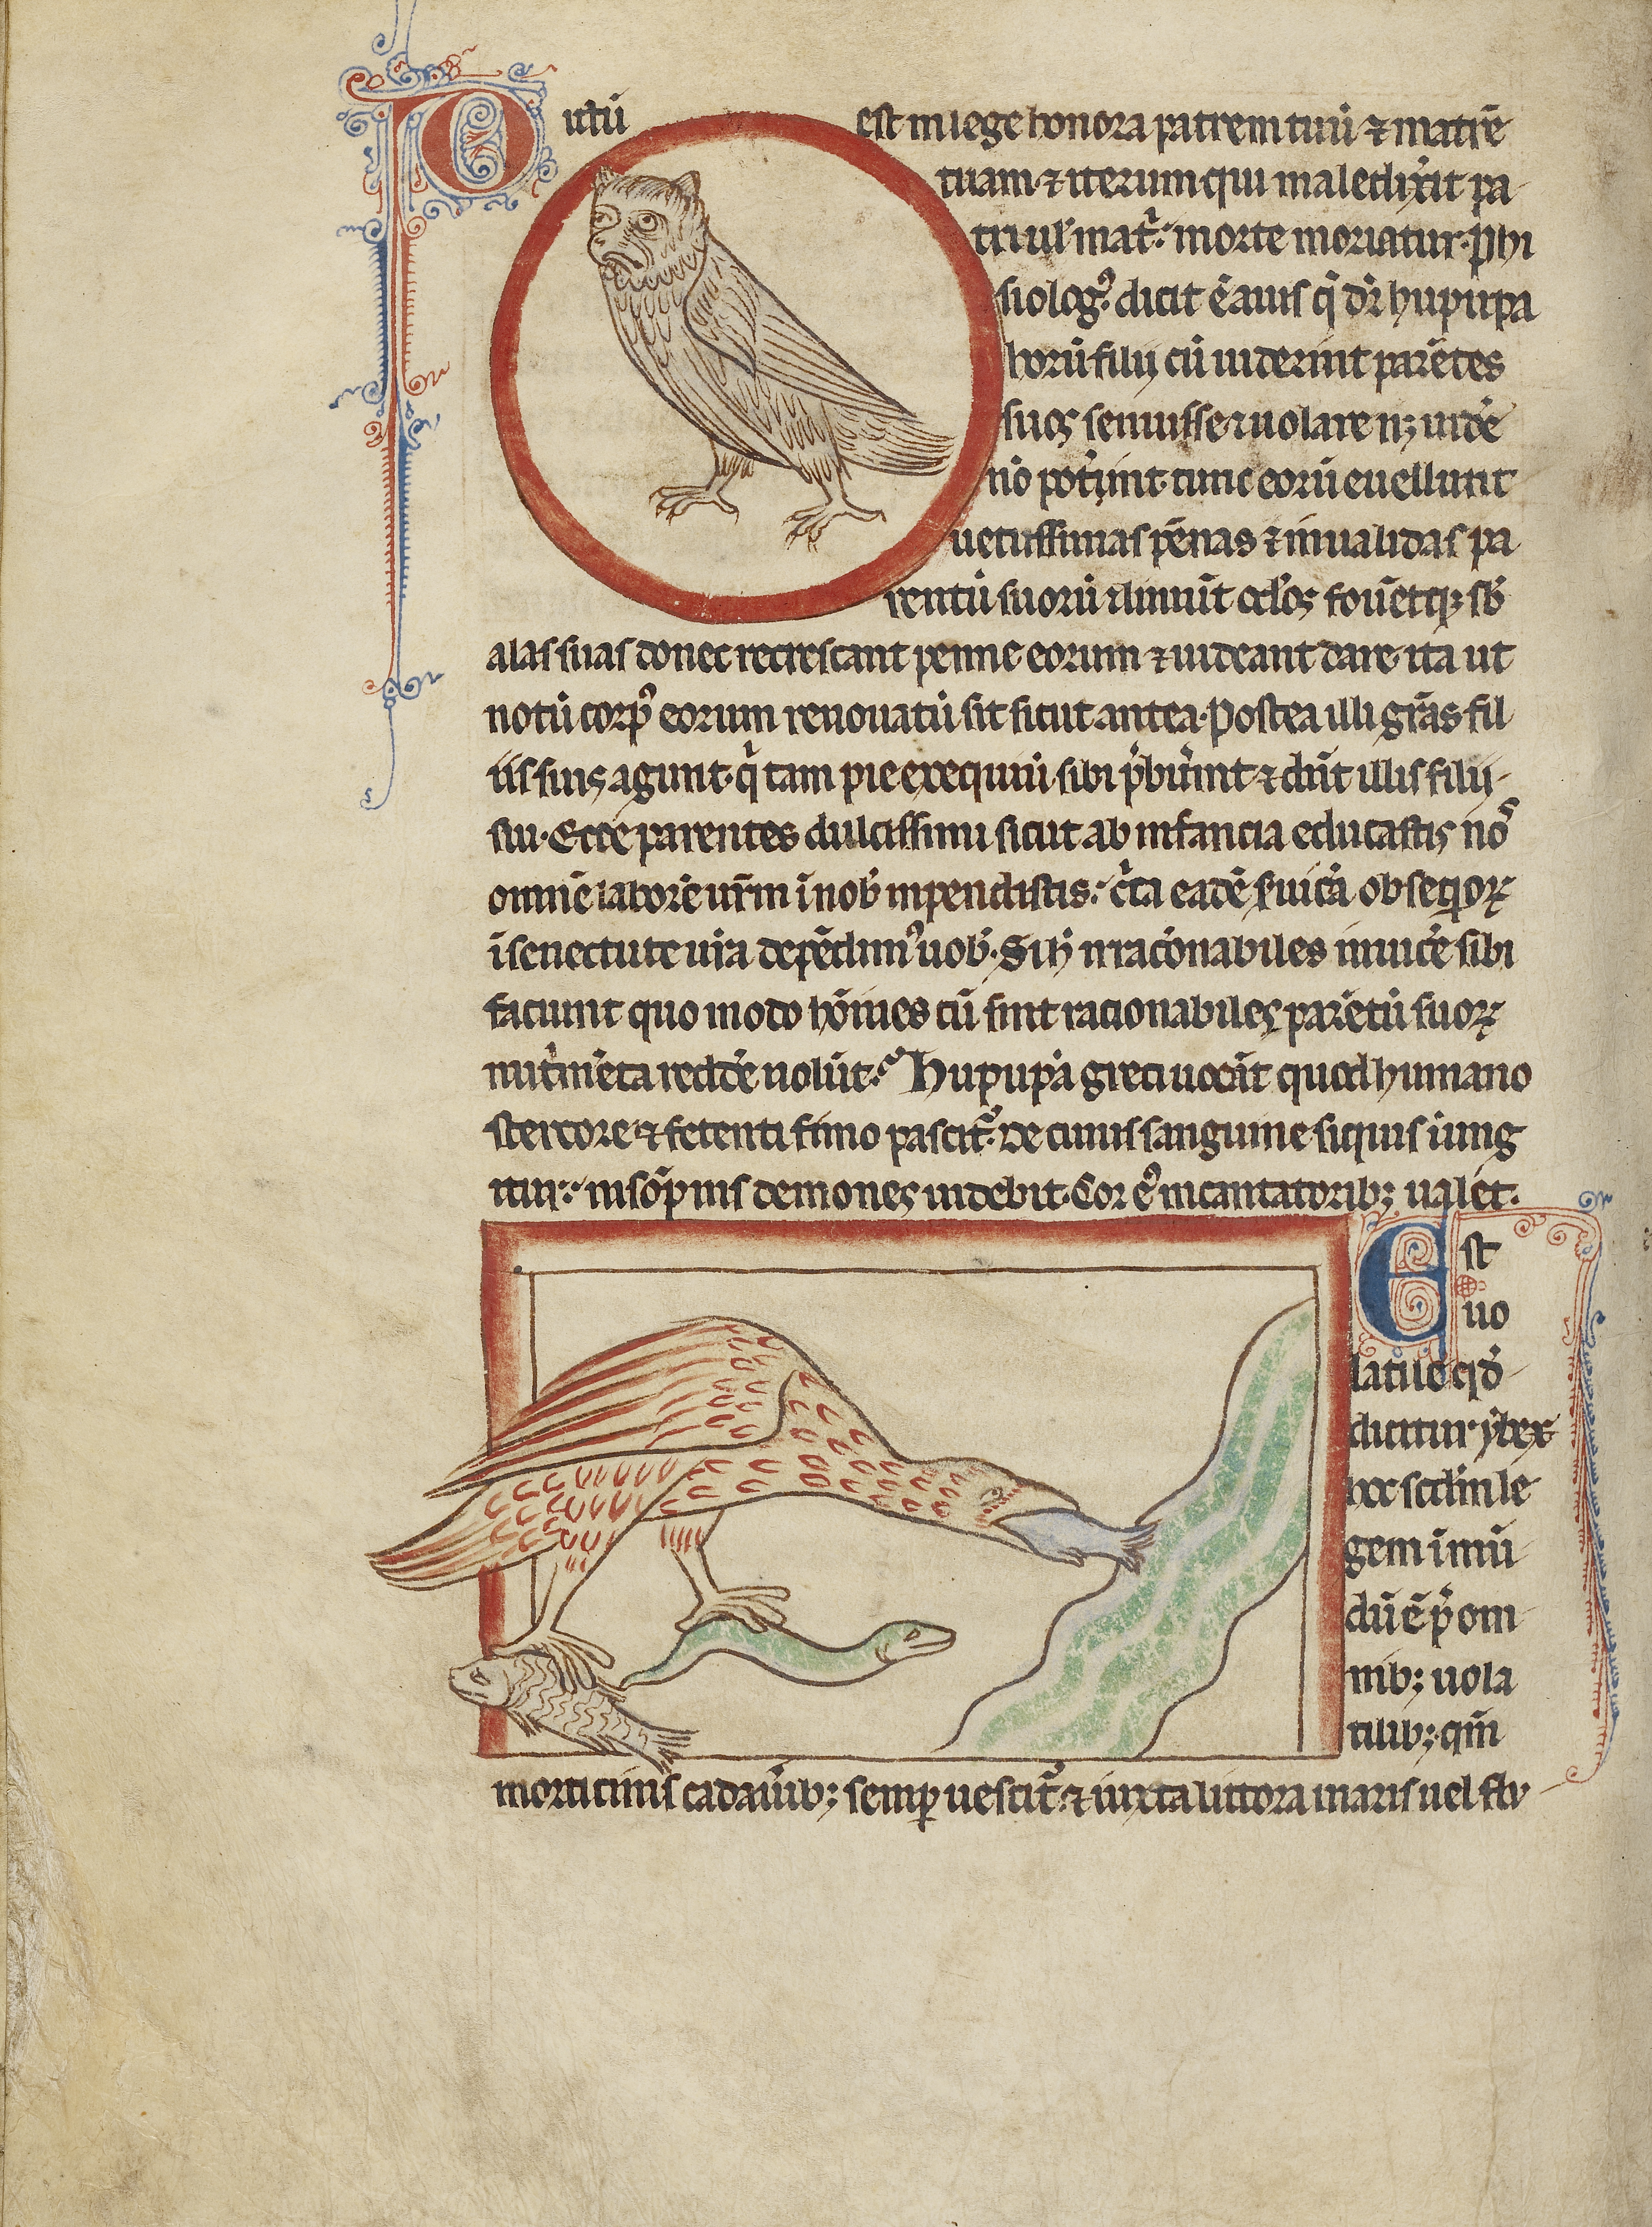 Dictū est in lege honora patrem tuū ⁊ matrē
tuam ⁊ iterum qui maledix̄it pa
tri uł mat̄. morte moriatur. phi
siologꝰ dicit ē auis q̄ dr̄ hupupa
horū filij cū uiderint parētes
suos senuisse ⁊ uolare nꝫ uidē
nō pot̄int tunc eorū euellunt
uetustissimas pēnas ⁊ inualidas pa
rentū suorū ⁊ liniūt oclos fouētqꝫ sb̄
alas suas donec recrescant penne eorum ⁊ uideant clare ita ut
totū corpꝰ eorum renouatū sit sicut antea. Postea illi gr̄as fil
iis suis agunt. q̄ tam pie exequiū sibi p̄buerint ⁊ dn̄t illis filij
sui. Ecce parentes dulcissimi sicut ab infancia educastis nos
omnē laborē ur̄m ī nob̄ inpendistis. c̄ta eadē s̄uicia obsequioꝝ
ī senectute ur̄a depēdimꝰ uob̄. Si h̄ irrac̄onabiles inuicē sibi
faciunt quo modo hōines cū sint racionabiles parētū suoꝝ
nut̄mēta reddē nolūt. Hupupā greci uocāt quod humano
stercore ⁊ fetenti fimo pascit̄. de cuius sanguine siquis iung
itur. in sōpnis demones uidebit. Cor eꝰ incantatoribꝫ ualet.
Est
uo
latile qd̄
dicitur ybex
hoc scdm̄ le
gem īmū
dū ē p̄ om
nibꝫ uola
tilibꝫ. qm̄
morticinis cadaūibꝫ semꝑ uescit̄. ⁊ iuxta littora maris uel flu